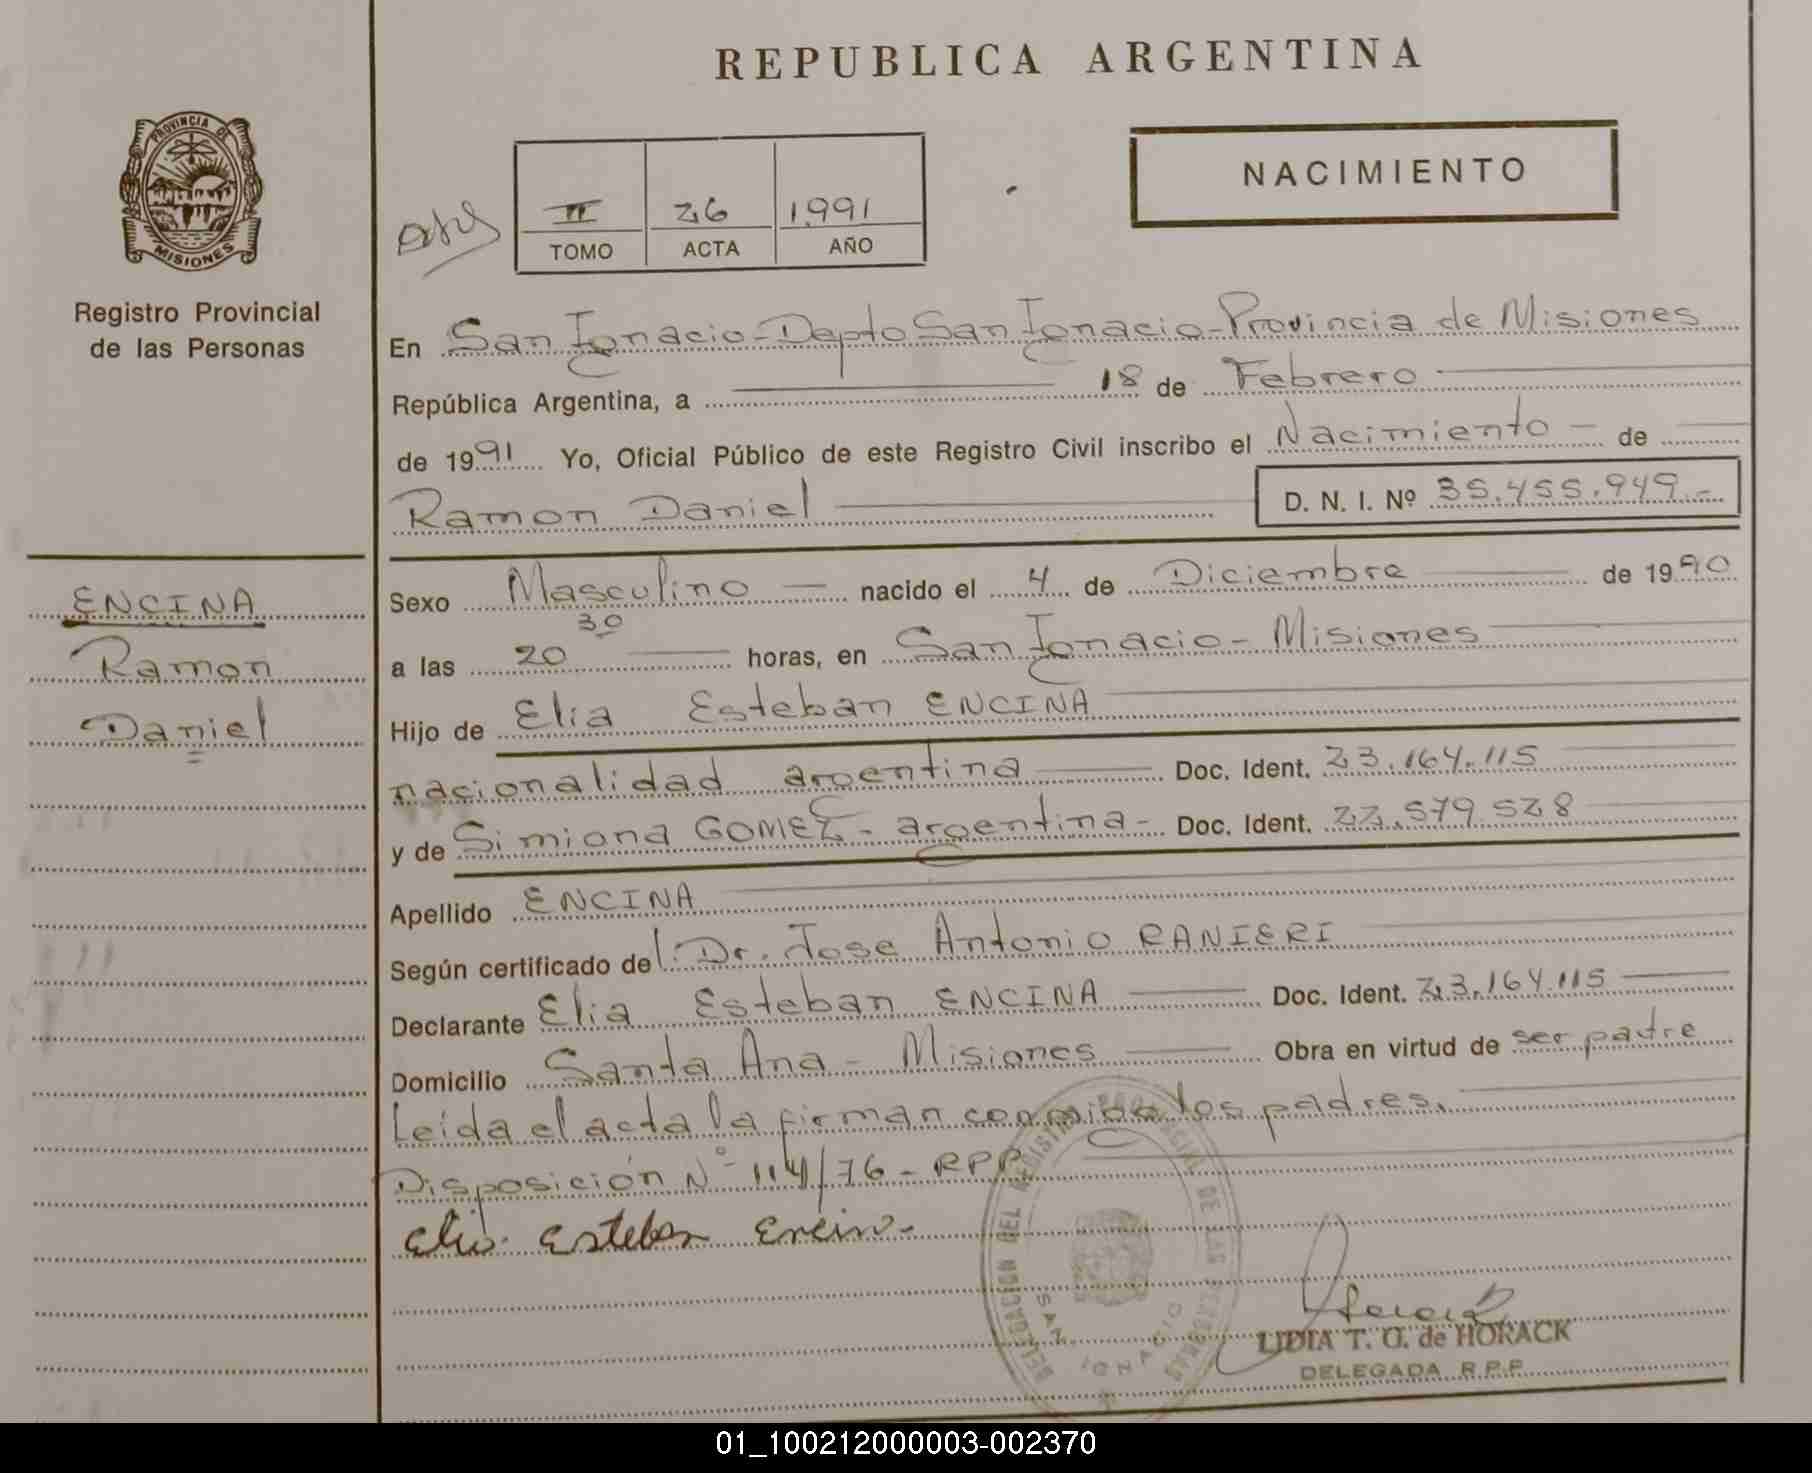 REPUBLICA ARGENTINA
PROVINCIA DE
MISIONES
Registro Provincial
de las Personas
II 26 1991
TOMO ACTA AÑO
NACIMIENTO
En San Ignacio - Depto San Ignacio - Provincia de Misiones
República Argentina, a 18 de Febrero
de 1991 Yo, Oficial Público de este Registro Civil inscribo el Nacimiento - de
Ramon Daniel D. N. I. Nº 35.455.949.-
ENCINA
Ramon
Daniel
Sexo Masculino nacido el 4 de Diciembre de 1990
a las 20 30 horas, en San Ignacio - Misiones
Hijo de Elia Esteban ENCINA
nacionalidad argentina Doc. Ident. 23.164.115
y de Simiona GOMEZ - argentina - Doc. Ident. 22.579.528
Apellido ENCINA
Según certificado del Dr. Jose Antonio RANIERI
Declarante Elia Esteban ENCINA Doc. Ident. 23.164.115
Domicilio Santa Ana - Misiones Obra en virtud de ser padre
Leída el acta la firman conmigo los padres.
Disposición Nº 114/76 - RPP
Elio Esteban Encin
DELEGACION DEL REGISTRO PROVINCIAL DE LAS PERSONAS
SAN IGNACIO
LIDIA T. G. de HORACK
DELEGADA R.P.P.
01_100212000003-002370